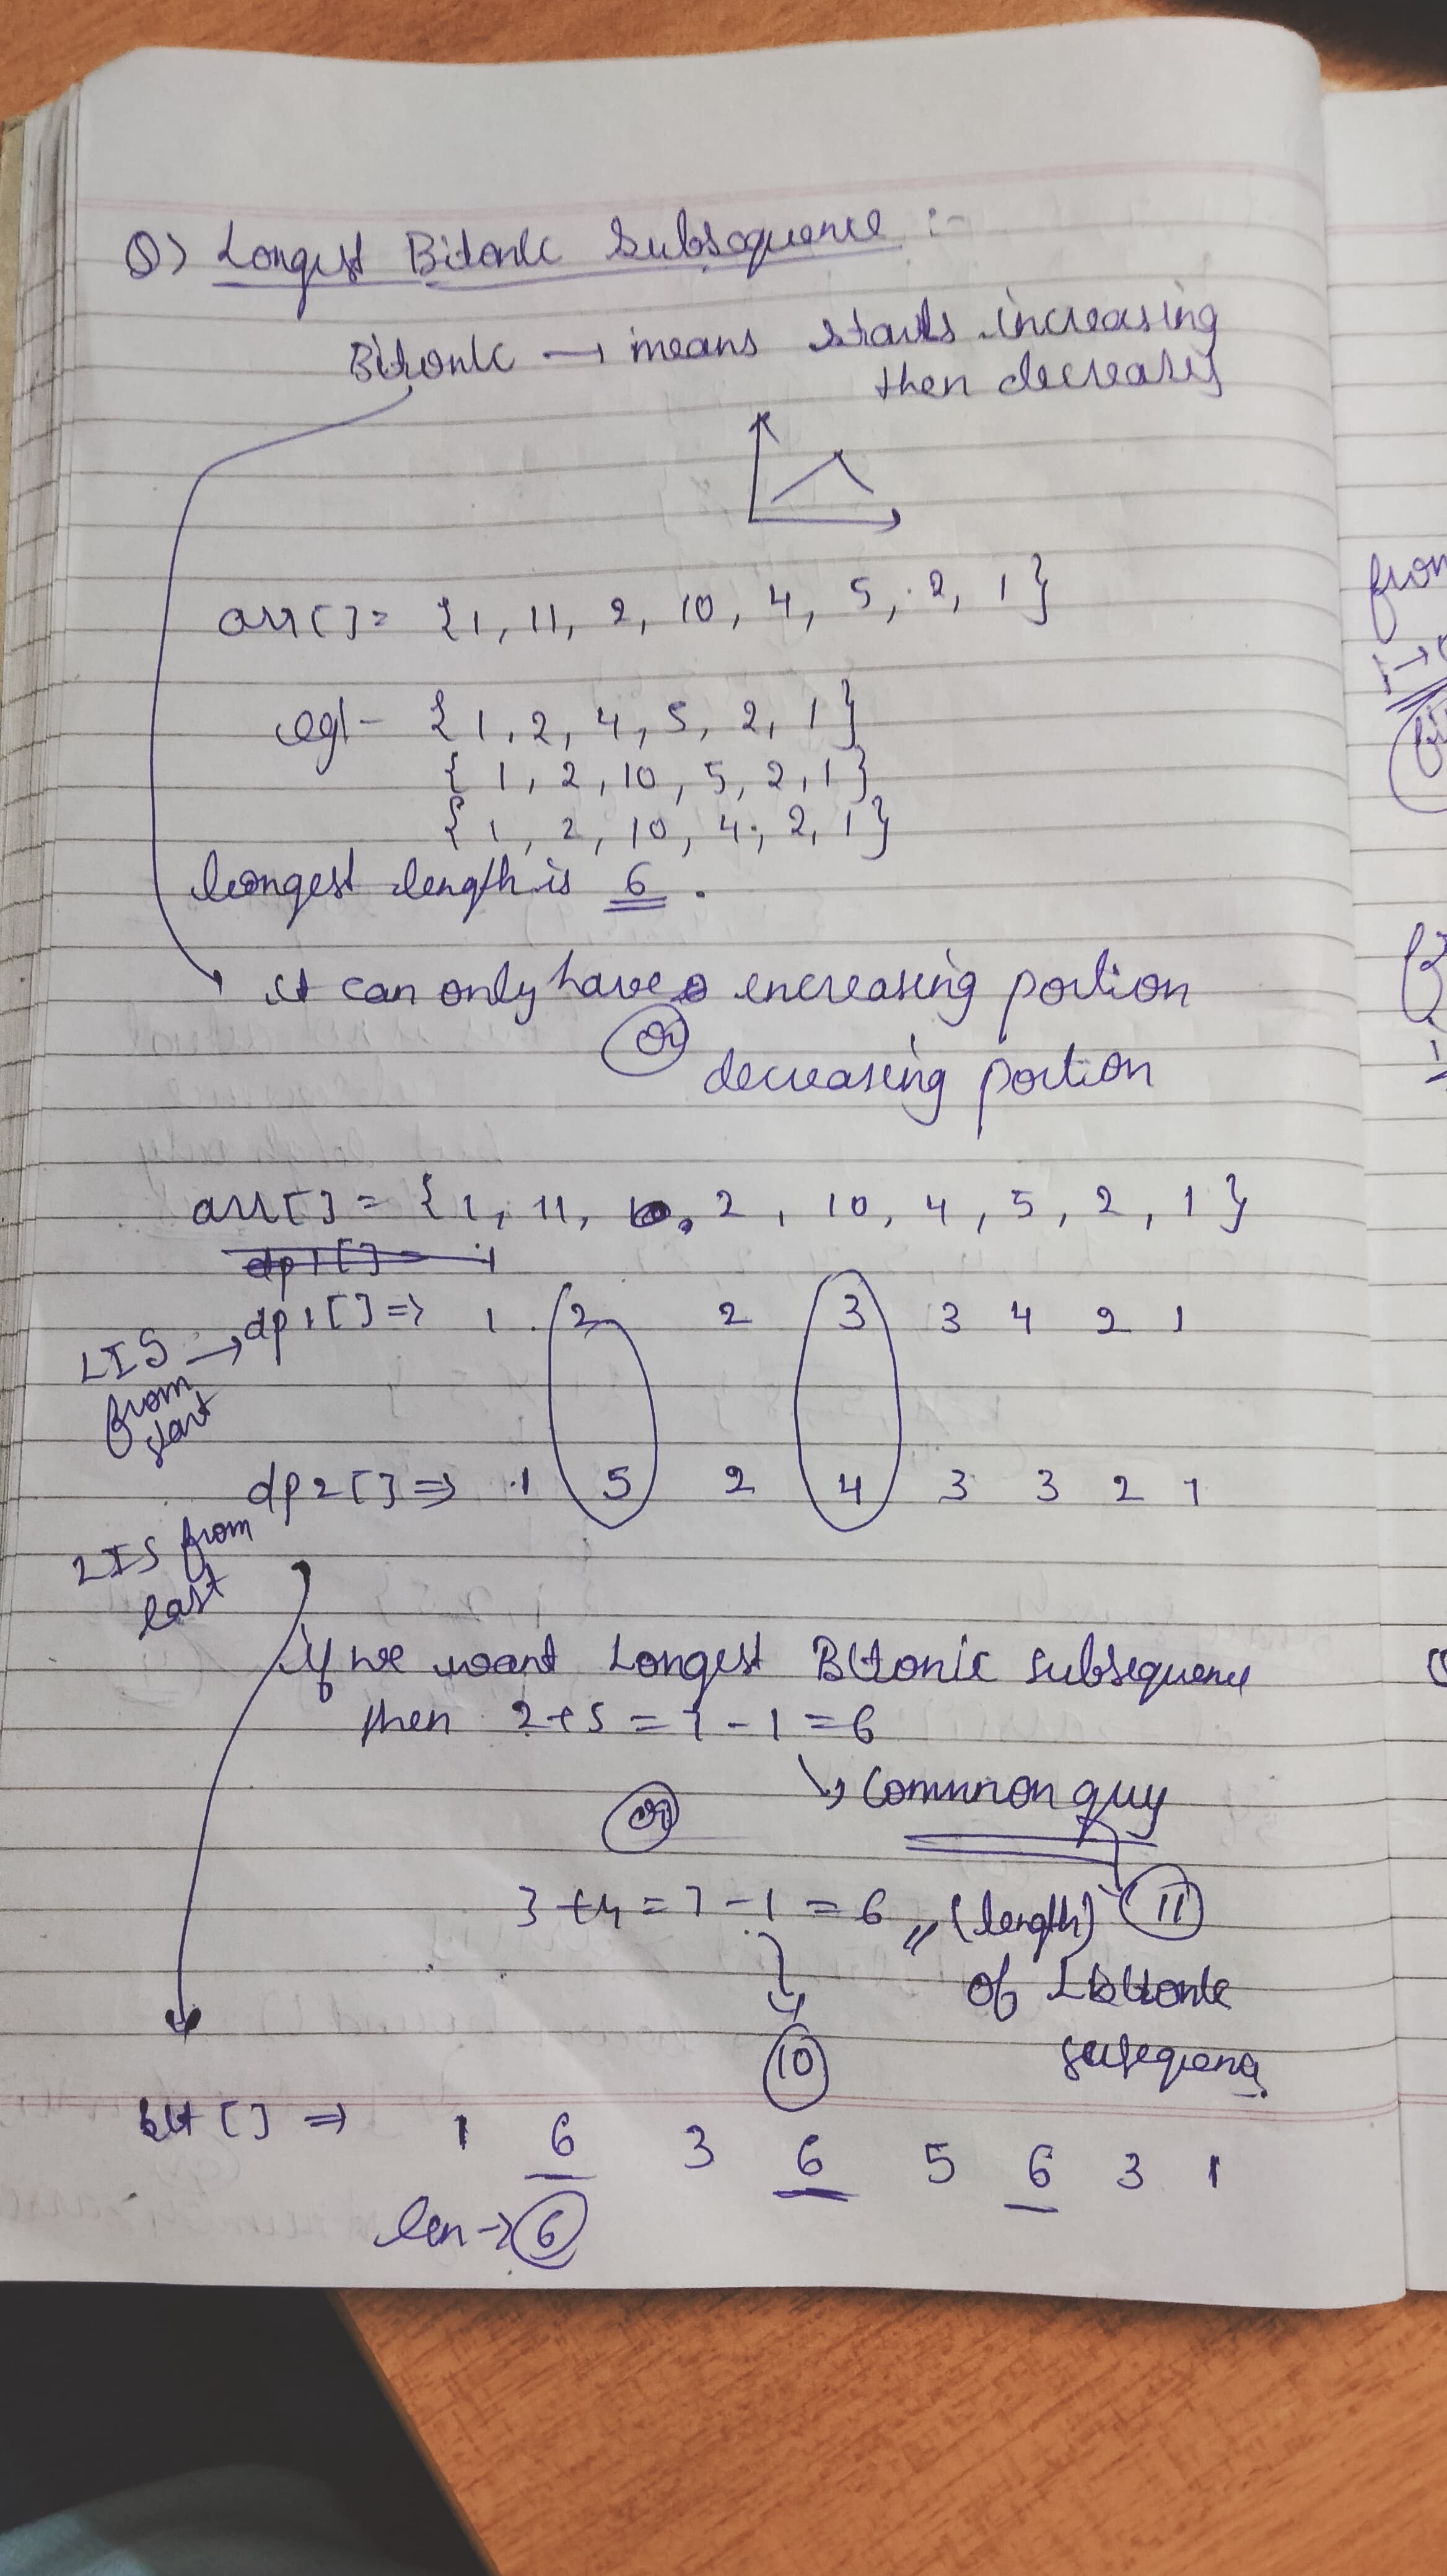 Q) Longest Bitonic Subsequence :-
Bitonic → means starts increasing
then decreases
arr[] = {1, 11, 2, 10, 4, 5, 2, 1}
eg:- {1, 2, 4, 5, 2, 1}
{1, 2, 10, 5, 2, 1}
{1, 2, 10, 4, 2, 1}
longest length is 6.
it can only have increasing portion
or
decreasing portion
arr[] = {1, 11, 2, 10, 4, 5, 2, 1}
dp1[] =
LIS from start → dp1[] => 1 2 2 3 3 4 2 1
dp2[] => 1 5 2 4 3 3 2 1
LIS from last
if we want Longest Bitonic subsequence
then 2+5 = 7-1 = 6
↳ common guy
or
3+4 = 7-1 = 6 ,, (length) 11
of LBitonic
10
bit[] => 1 6 3 6 5 6 3 1
len → 6
from